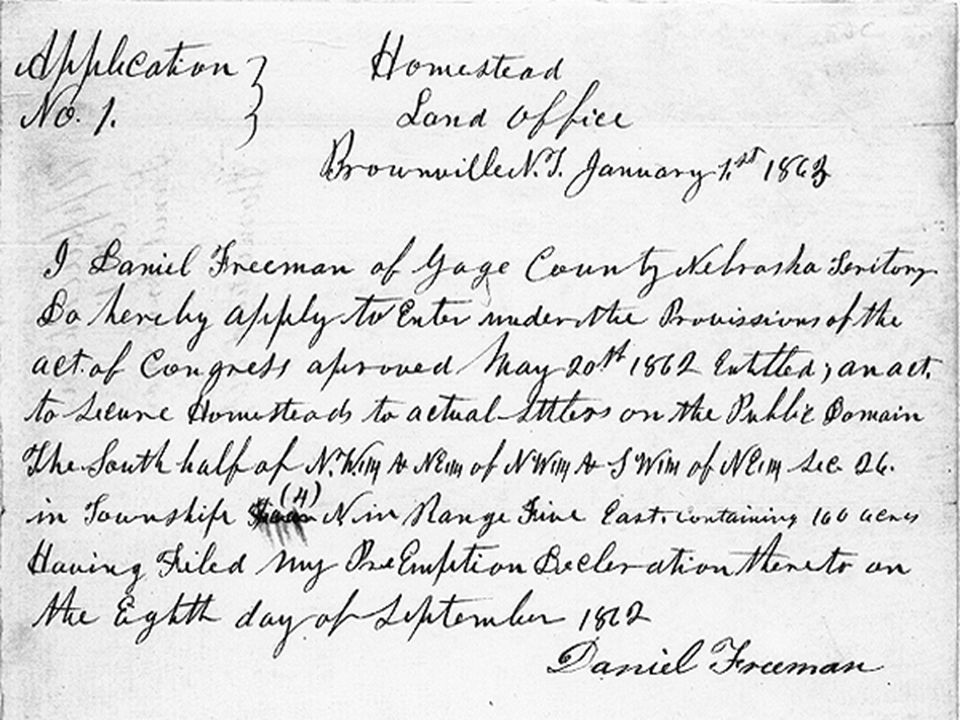 Application No. 1. }
Homestead
Land Office
Brownville N.T. January 1st 1863
I Daniel Freeman of Gage County Nebraska Teritory
Do hereby apply to Enter under the Provissions of the
act of Congress aproved May 20th 1862 Entitled; an act,
to Secure Homesteads to actual Settlers on the Public Domain
The South half of N.W¼ & NE¼ of NW¼ & SW¼ of NE¼ Sec 26.
in Township (4) N in Range Five East. containing 160 acres
Having Filed my PreEmption Decleration thereto on
the Eighth day of September 1862
Daniel Freeman